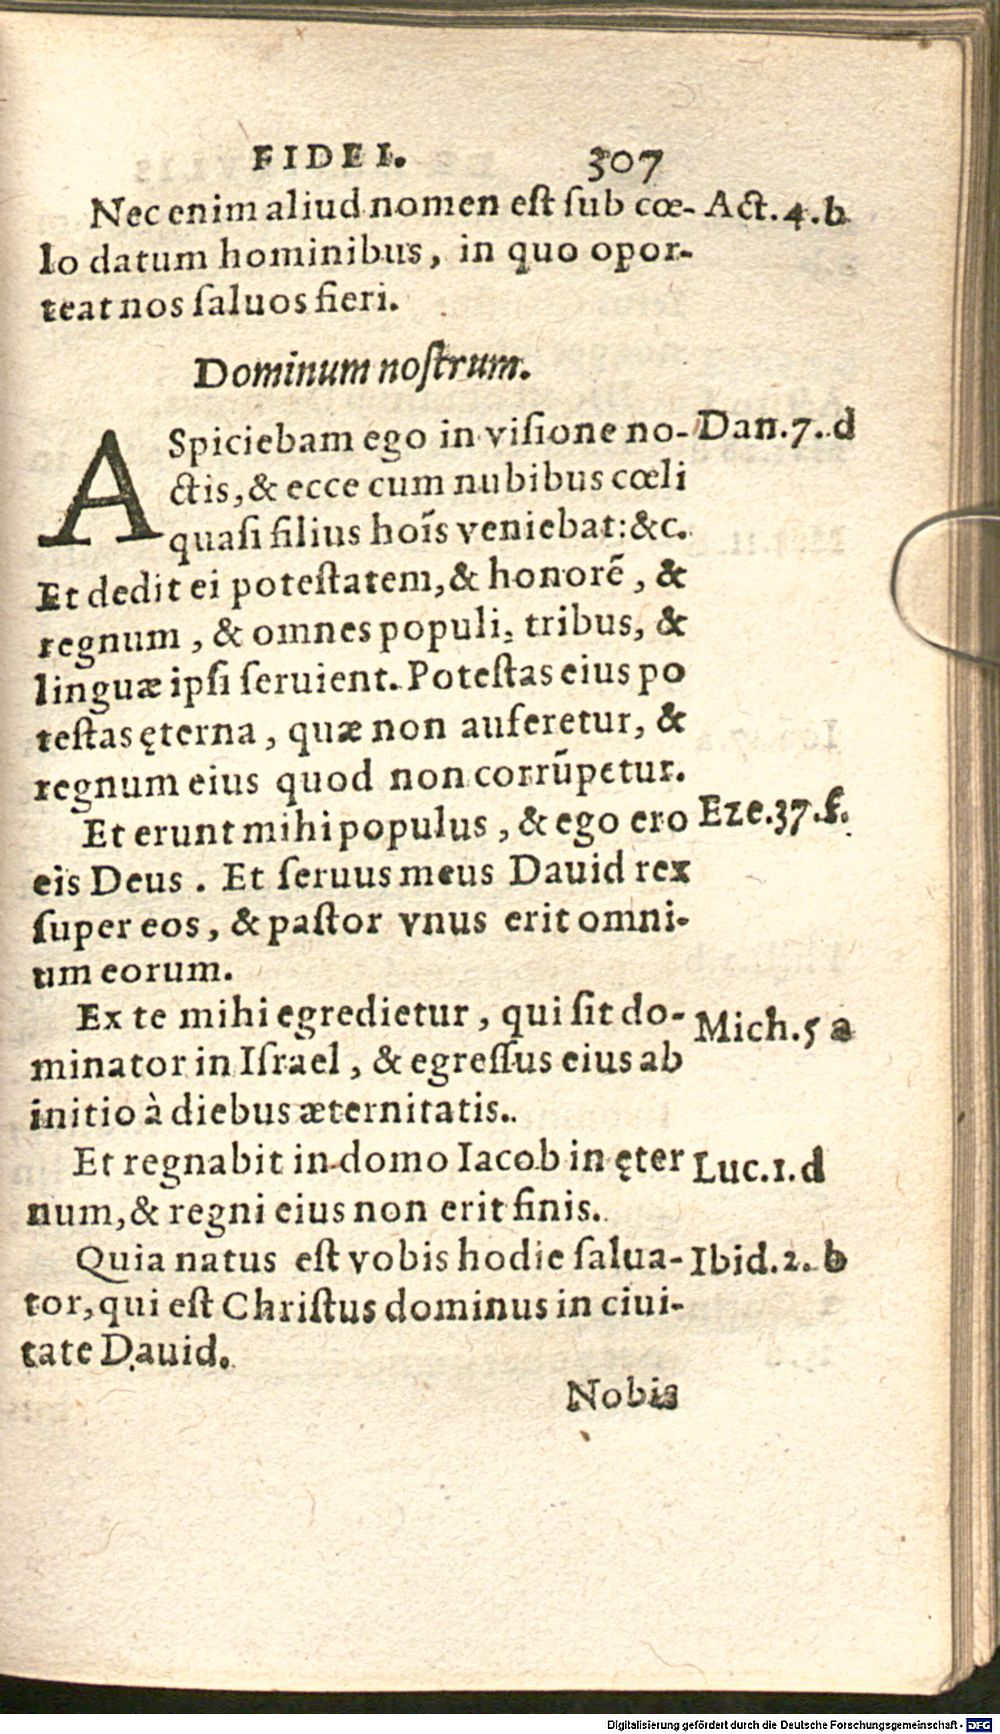 FIDEI. 307
Nec enim aliud nomen est sub cœ- Act.4.b
lo datum hominibus, in quo opor-
teat nos saluos fieri.
Dominum nostrum.
ASpiciebam ego in visione no- Dan.7.d
ctis, & ecce cum nubibus cœli
quasi filius hoĩs veniebat: &c.
Et dedit ei potestatem, & honorẽ, &
regnum, & omnes populi, tribus, &
linguæ ipsi seruient. Potestas eius po
testas ęterna, quæ non auferetur, &
regnum eius quod non corrũpetur.
Et erunt mihi populus, & ego ero Eze.37.f.
eis Deus. Et seruus meus Dauid rex
super eos, & pastor vnus erit omni-
um eorum.
Ex te mihi egredietur, qui sit do- Mich.5 a
minator in Israel, & egressus eius ab
initio à diebus æternitatis.
Et regnabit in domo Iacob in ęter Luc.1.d
num, & regni eius non erit finis.
Quia natus est vobis hodie salua- Ibid.2.b
tor, qui est Christus dominus in ciui-
tate Dauid.
Nobis
Digitalisierung gefördert durch die Deutsche Forschungsgemeinschaft - DFG